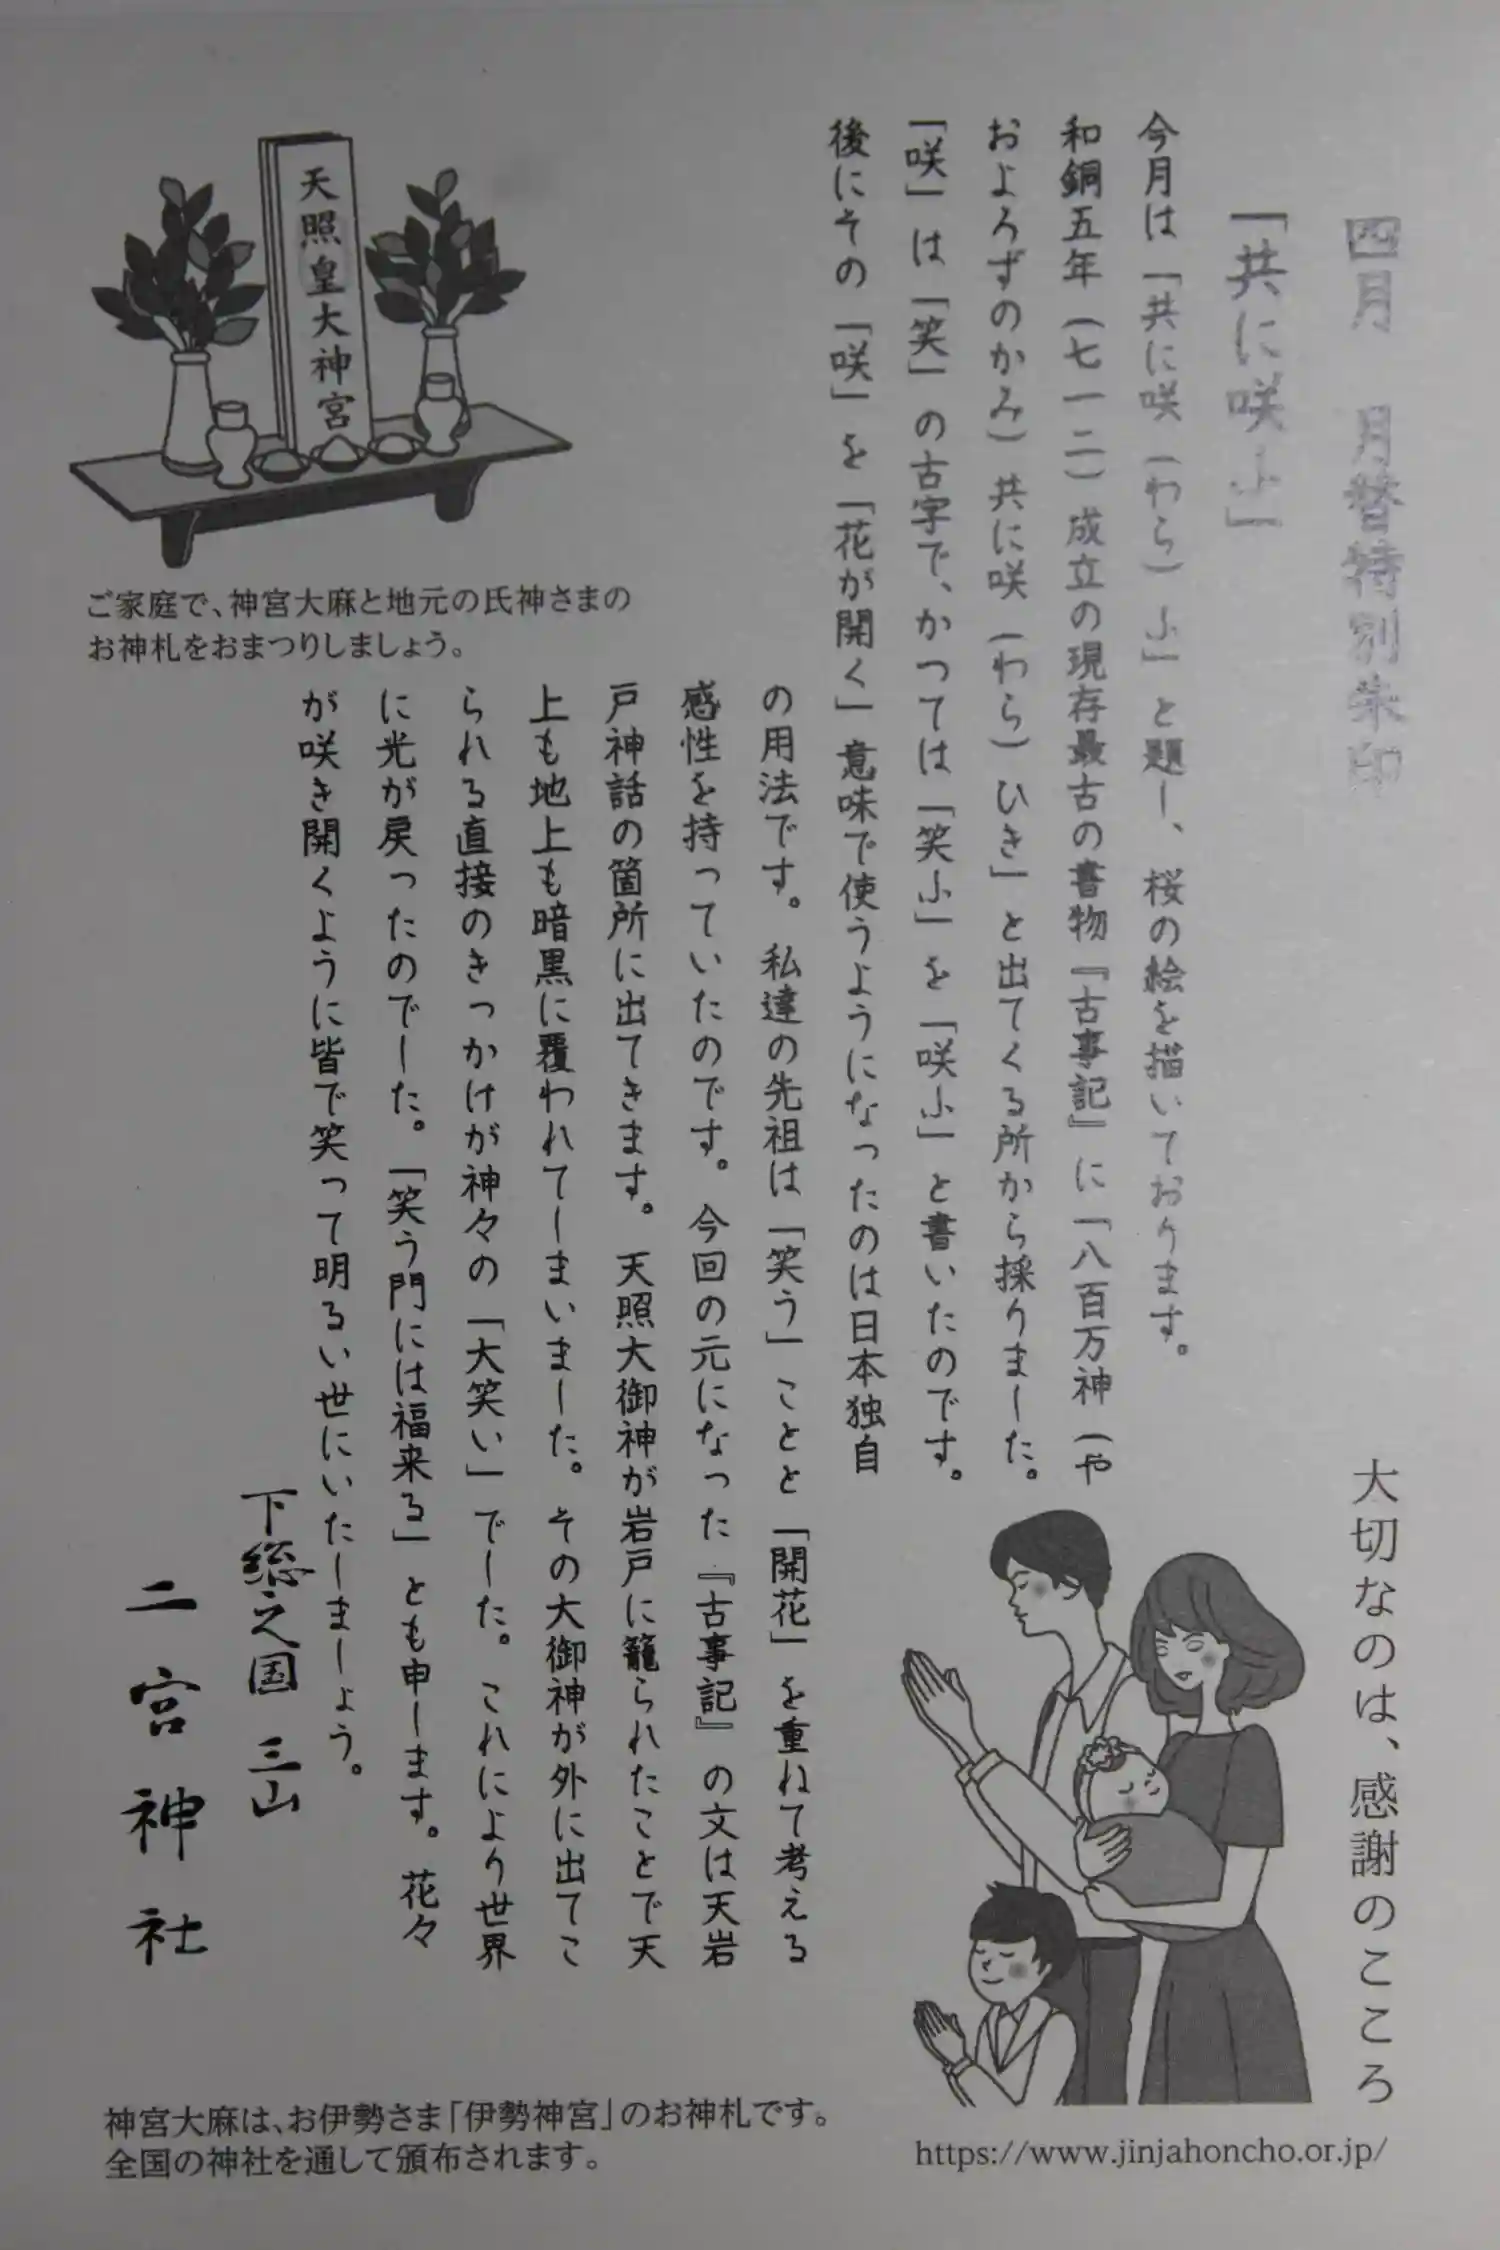 四月　月替特別朱印
「共に咲ふ」
今月は「共に咲（わら）ふ」と題し、桜の絵を描いております。
和銅五年（七一二）成立の現存最古の書物『古事記』に「八百万神（や
およろずのかみ）共に咲（わら）ひき」と出てくる所から採りました。
「咲」は「笑」の古字で、かつては「笑ふ」を「咲ふ」と書いたのです。
後にその「咲」を「花が開く」意味で使うようになったのは日本独自
の用法です。私達の先祖は「笑う」ことと「開花」を重ねて考える
感性を持っていたのです。今回の元になった『古事記』の文は天岩
戸神話の箇所に出てきます。天照大御神が岩戸に籠られたことで天
上も地上も暗黒に覆われてしまいました。その大御神が外に出てこ
られる直接のきっかけが神々の「大笑い」でした。これにより世界
に光が戻ったのでした。「笑う門には福来る」とも申します。花々
が咲き開くように皆で笑って明るい世にいたしましょう。
下総之国　三山
二宮神社
天照皇大神宮
ご家庭で、神宮大麻と地元の氏神さまの
お神札をおまつりしましょう。
大切なのは、感謝のこころ
神宮大麻は、お伊勢さま「伊勢神宮」のお神札です。
全国の神社を通して頒布されます。
https://www.jinjahoncho.or.jp/